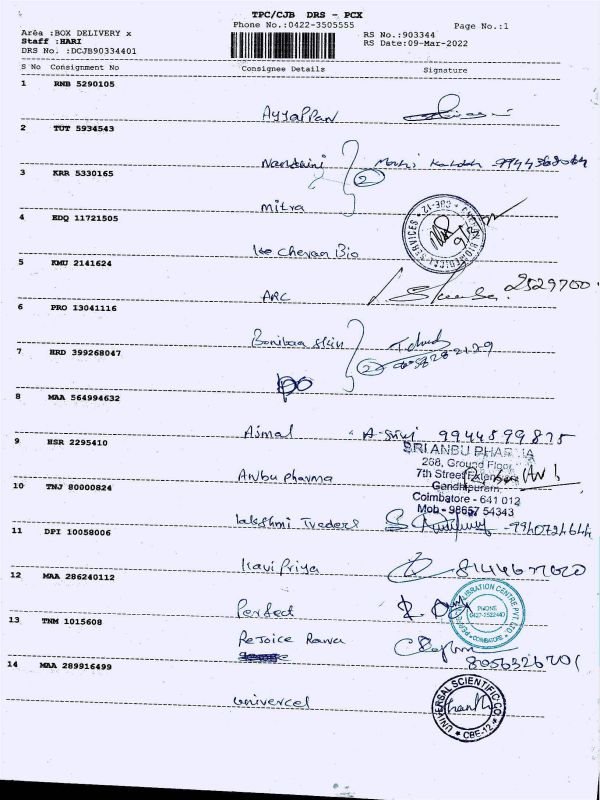 TPC/CJB DRS - PCX
Phone No.:0422-3505555
Page No.:1
Area :BOX DELIVERY x
Staff :HARI
DRS No. :DCJB90334401
RS No.:903344
RS Date:09-Mar-2022
S No Consignment No Consignee Details Signature
1 RNB 5290105
Ayyappan
2 TUT 5934543
Nandhini
3 KRR 5330165
2
Mitra
4 EDQ 11721505
Bio
5 KMU 2141624
ARC 2529700
6 PRO 13041116
skin
7 HRD 399268047
2
8 MAA 564994632
Ajmal 9944599875
9 HSR 2295410
SRI ANBU PHARMA
268, Ground Floor,
7th Street Extension
Gandhipuram,
Coimbatore - 641 012
Mob - 98657 54343
Anbu pharma
10 TNJ 80000824
Lakshmi Traders
11 DPI 10058006
Kavi Priya
12 MAA 286240112
Perfect
13 TNM 1015608
Rejoice
14 MAA 289916499
Univercel
UNIVERSAL SCIENTIFIC CO.
CBE-12